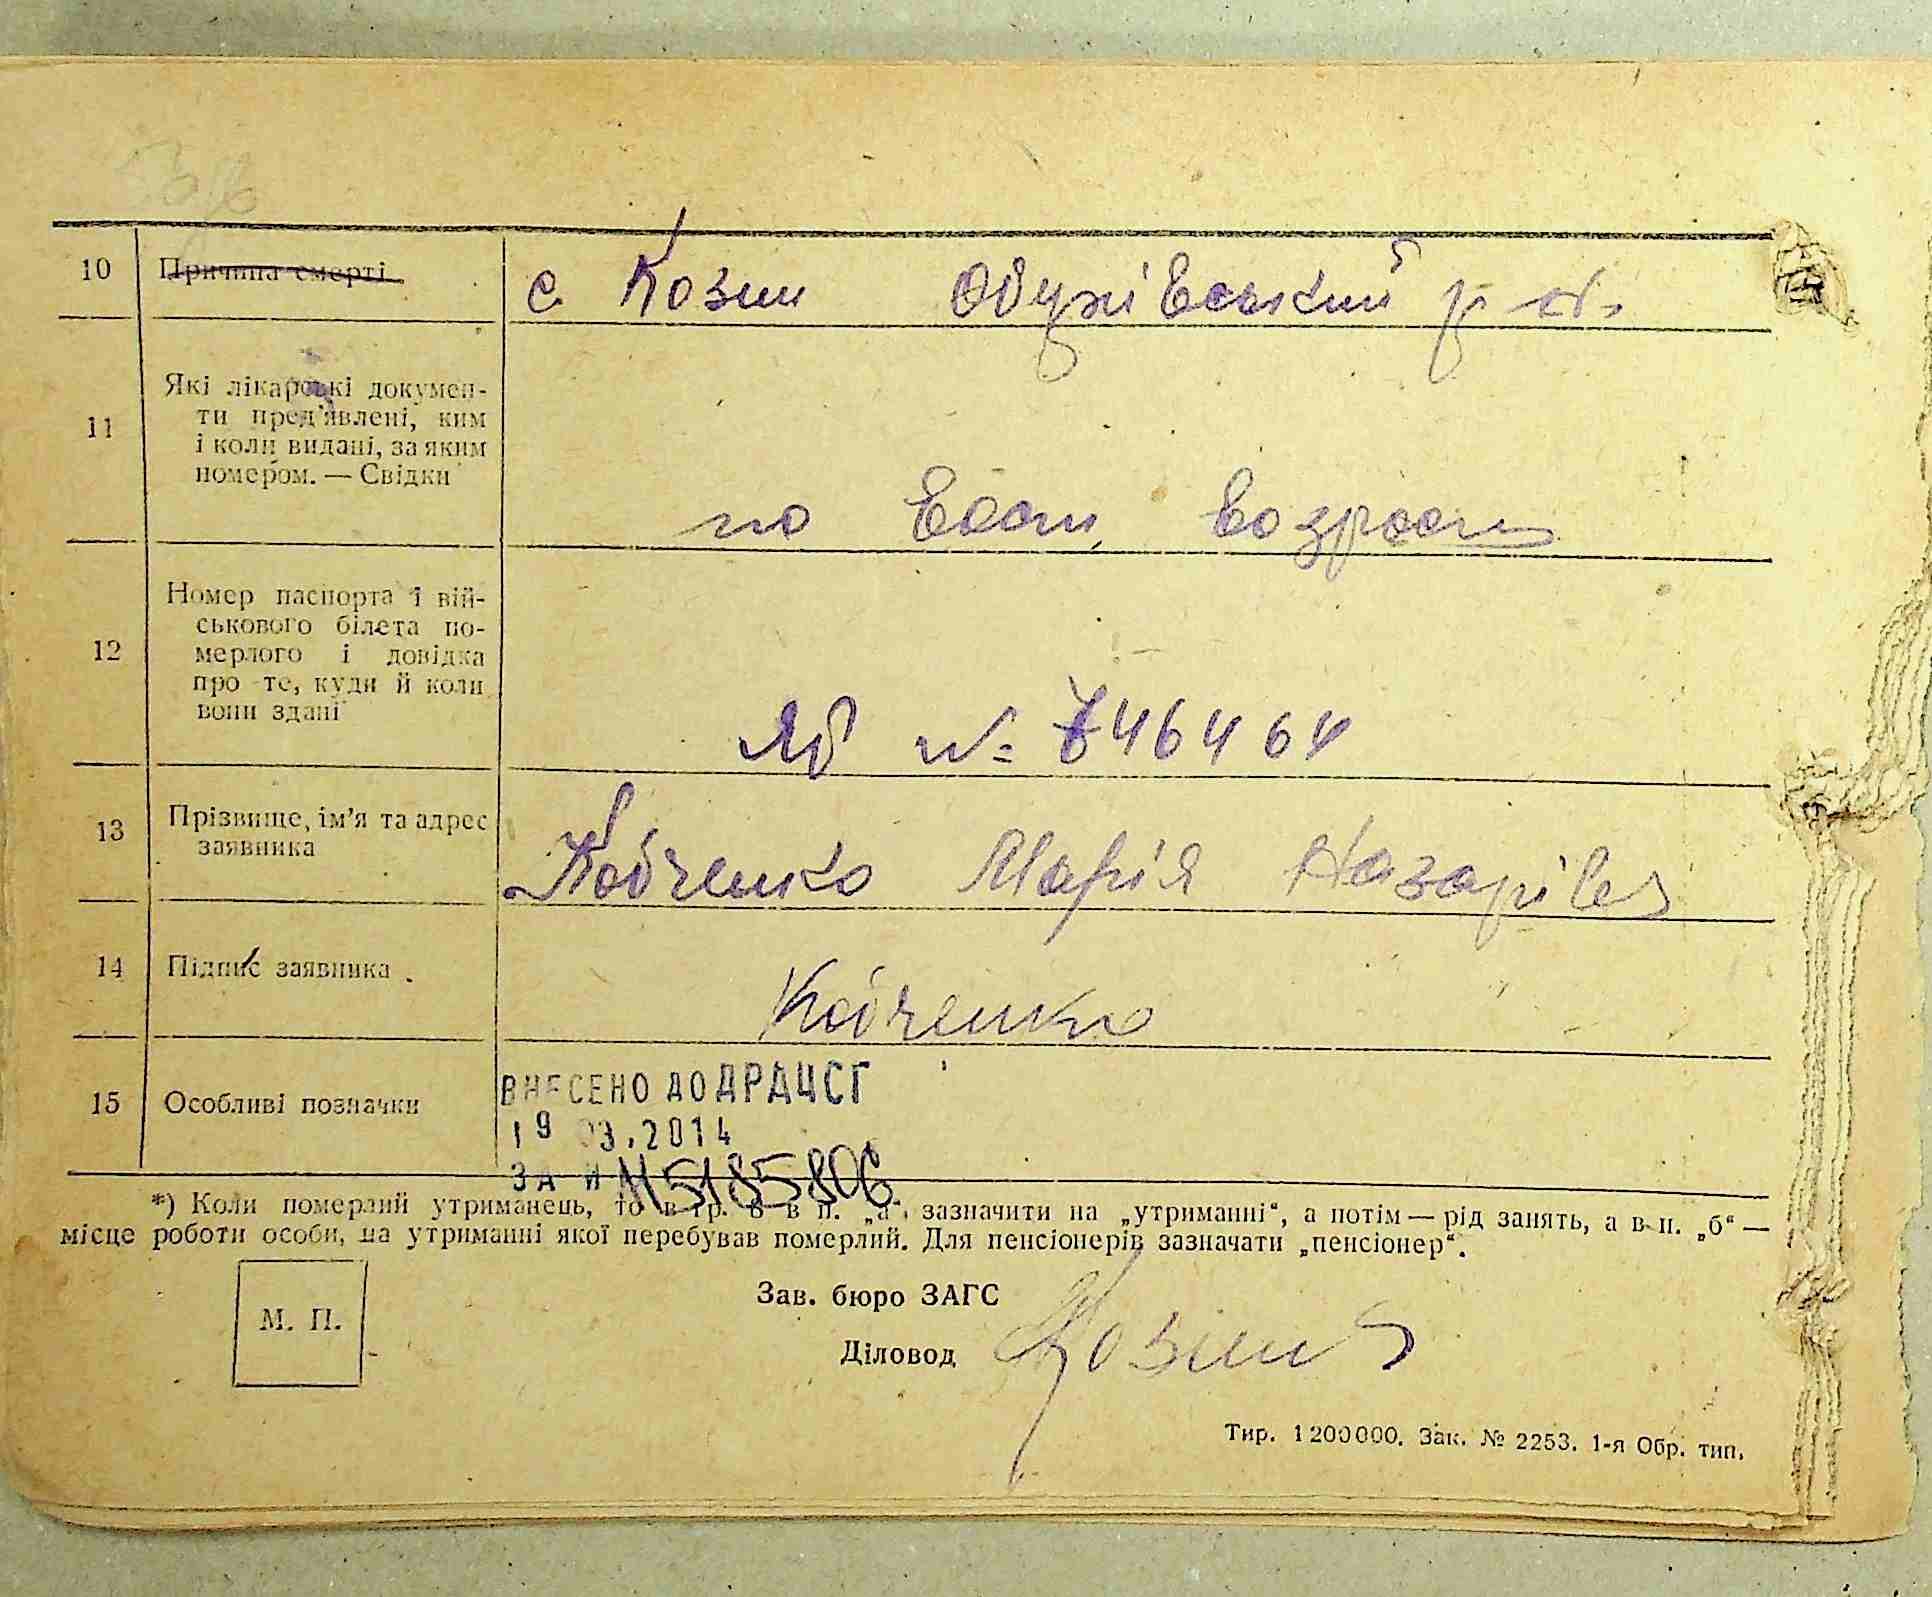 10 Причина смерті с Козин Обухівський р-н.
11 Які лікарські докумен-
ти пред'явлені, ким
і коли видані, за яким
номером. — Свідки
по возрасту
12 Номер паспорта і вій-
ськового білета по-
мерлого і довідка
про те, куди й коли
вони здані
ЯБ № 746464
13 Прізвище, ім'я та адрес
заявника
Кобченко Марія Назарівна
14 Підпис заявника
Кобченко
15 Особливі позначки
ВНЕСЕНО ДО ДРАЦСГ
19 03.2014
ЗА № 5185806
*) Коли померлий утриманець, то в гр. 8 в п. „а“, зазначити на „утриманні“, а потім — рід занять, а в п. „б“ —
місце роботи особи, на утриманні якої перебував померлий. Для пенсіонерів зазначати „пенсіонер“.
Зав. бюро ЗАГС
М. П.
Діловод
Тир. 1200000. Зак. № 2253. 1-я Обр. тип.